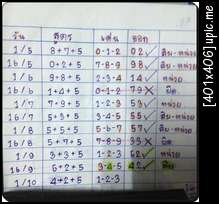 วัน สูตร เด่น ออก
1/5 8+7+5 0-1-2 02✓ สิบ-หน่วย
16/5 0+2+5 7-8-9 98✓ สิบ-หน่วย
1/6 9+8+5 2-3-4 14✓ หน่วย
16/6 1+4+5 0-1-2 79✗ ปิด
1/7 7+9+5 1-2-3 53✓ หน่วย
16/7 5+3+5 3-4-5 55✓ สิบ-หน่วย
1/8 5+5+5 5-6-7 57✓ สิบ-หน่วย
16/8 5+7+5 7-8-9 33✗
1/9 3+3+5 1-2-3 62✓ หน่วย
16/9 6+2+5 3-4-5 42✓ สิบ
1/10 4+2+5 1-2-3
[401x406] upic.me